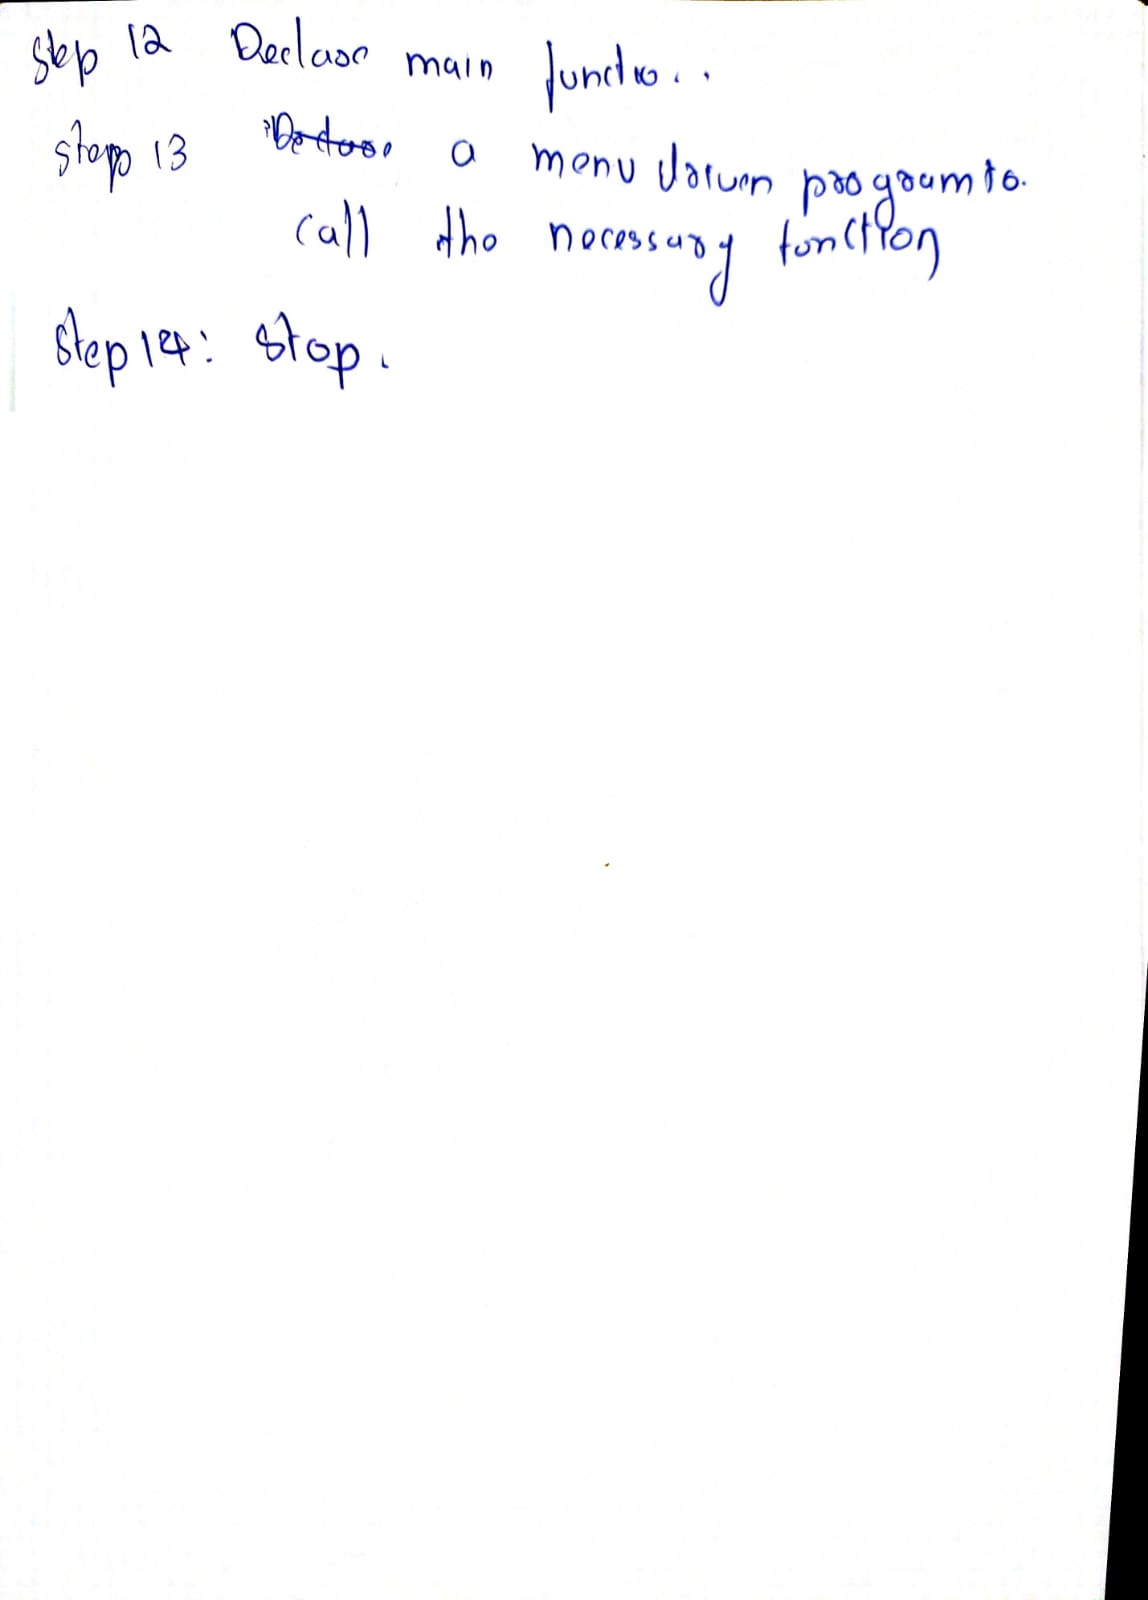 Step 12 Declare main functio..
step 13 a menu driven program to.
call the necessary function
Step 14: Stop.